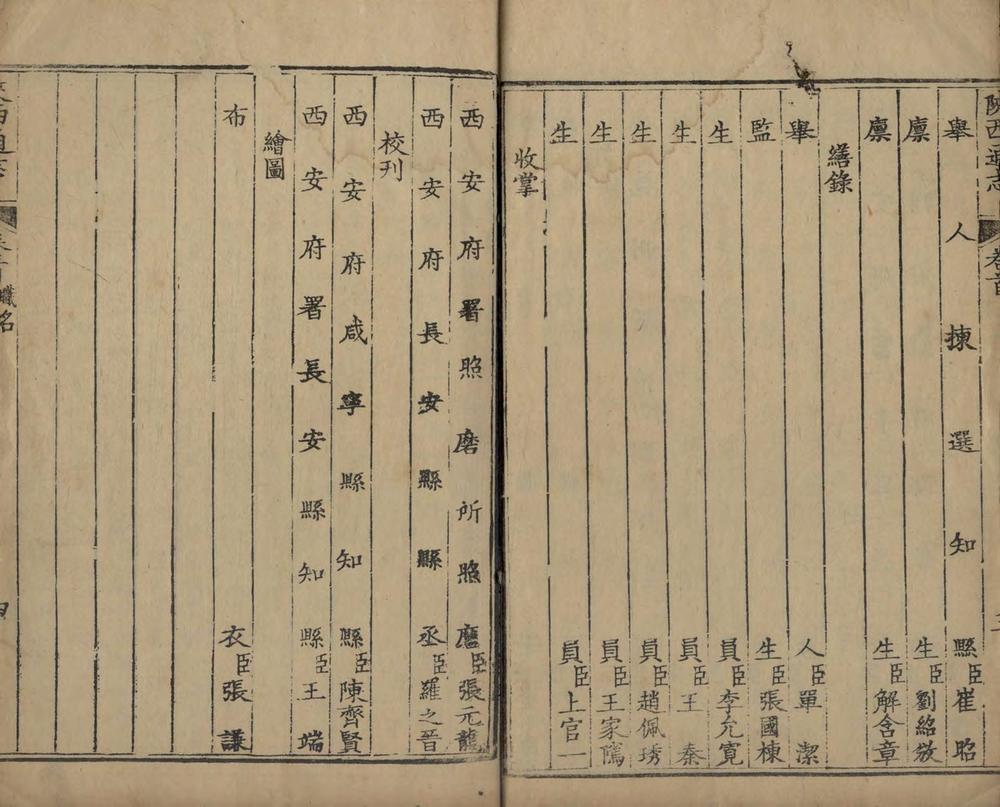 陝西通志 卷首
舉人揀選知縣臣崔昭
廪生臣劉紹攽
廪生臣解含章
繕錄
舉人臣單潔
監生臣張國棟
生員臣李允寛
生員臣王秦
生員臣趙佩琇
生員臣王家隲
生員臣上官一
收掌
西安府署照磨所照磨臣張元龍
西安府長安縣縣丞臣羅之晉
校刊
西安府咸寧縣知縣臣陳齊賢
西安府署長安縣知縣臣王端
繪圖
布衣臣張謙
職名